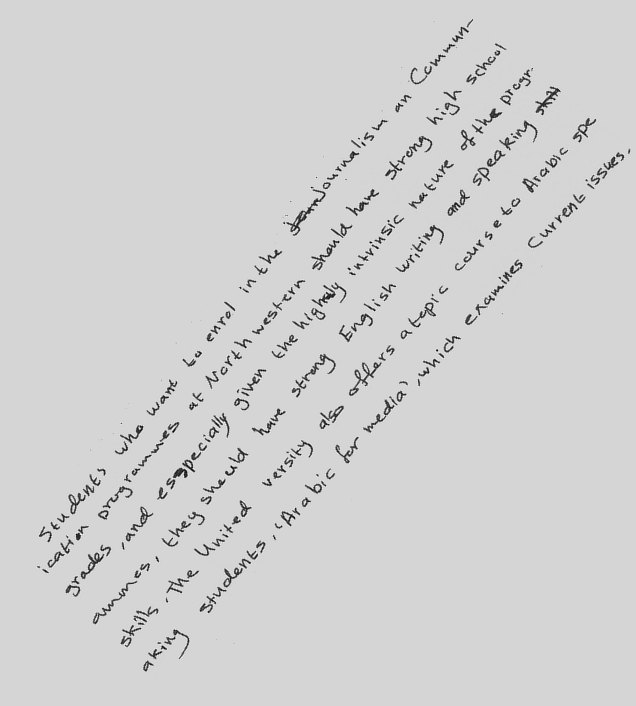 Students who want to enrol in the Journalism an Commun-
ication programmes at Northwestern should have strong high school
grades, and esspecially given the highly intrinsic nature of the progr-
ammes, they should have strong English writing and speaking
skills. The United versity also offers a topic course to Arabic spe
aking students, 'Arabic for media', which examines Current issues.